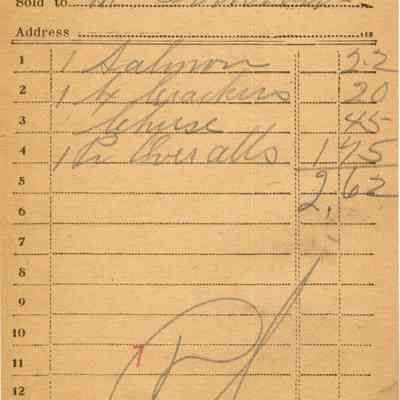 Sold to
Address
1 1 Salmon 22
2 1 X Crackers 20
3 Cheese 45
4 1 Pr Overalls 1 75
5 2,62
6
7
8
9
10
11
12